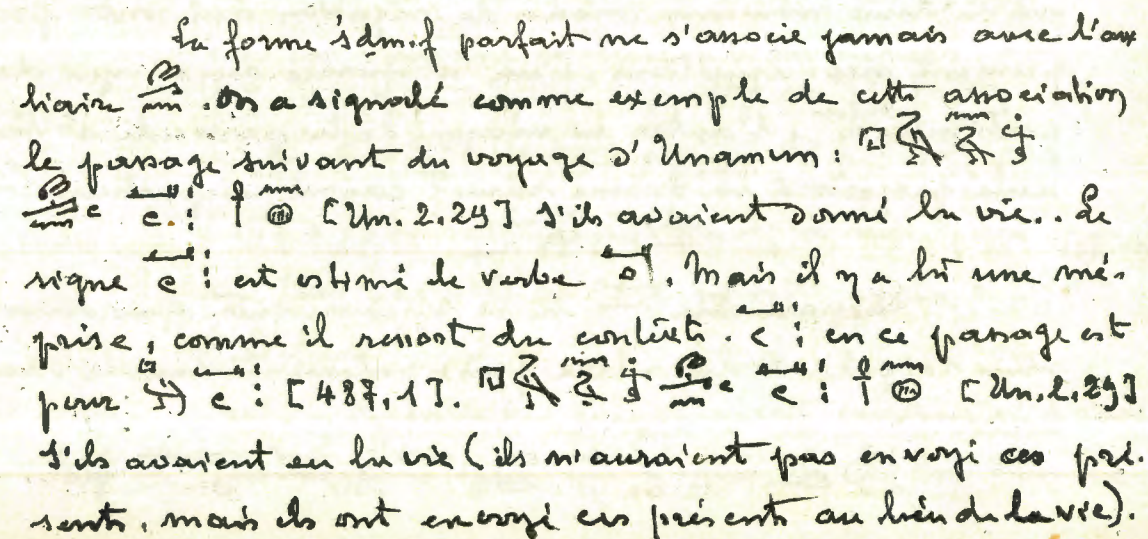 La forme śdm.f parfait ne s'associe jamais avec l'aux
liaire . On a signalé comme exemple de cette association
le passage suivant du voyage d'Unamun :
[Un. 2.29] S'ils avaient donné la vie.. Le
signe est estimé le verbe . Mais il y a là une mé-
prise, comme il ressort du contexte. en ce passage est
pour [487,1]. [Un. 2.29]
S'ils avaient eu la vie (ils n'auraient pas envoyé ces pré-
sents, mais ils ont envoyé ces présents au lieu de la vie).